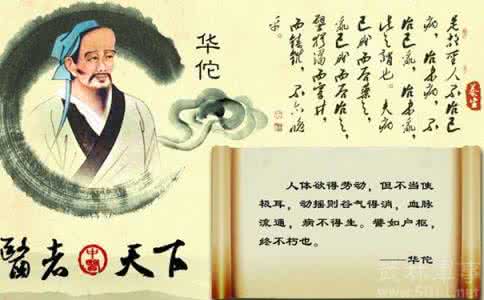 华佗
是故圣人不治已
病，治未病，不
治已乱，治未乱，
此之谓也。夫病
已成而后药之，
乱已成而后治之，
譬犹渴而穿井，
而铸锥，不亦晚
乎。
养生
人体欲得劳动，但不当使
极耳，动摇则谷气得消，血脉
流通，病不得生。譬如户枢，
终不朽也。
——华佗
醫者中醫天下